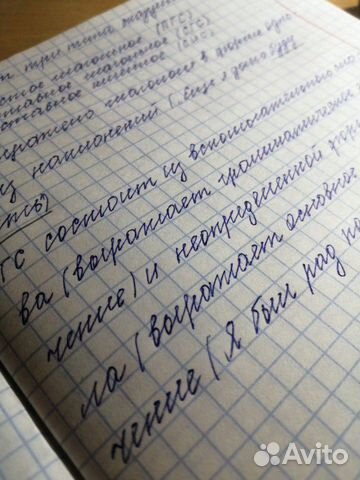 три типа
глагольное (ПГС)
составное глагольное (СГС)
составное именное (СИС)
выражено глаголом в форме одно
из наклонений (
ГС состоит из вспомогательного
ва (выражает грамматическое
чение) и неопределенной
ла (выражает основное
чение (Я был рад
Avito